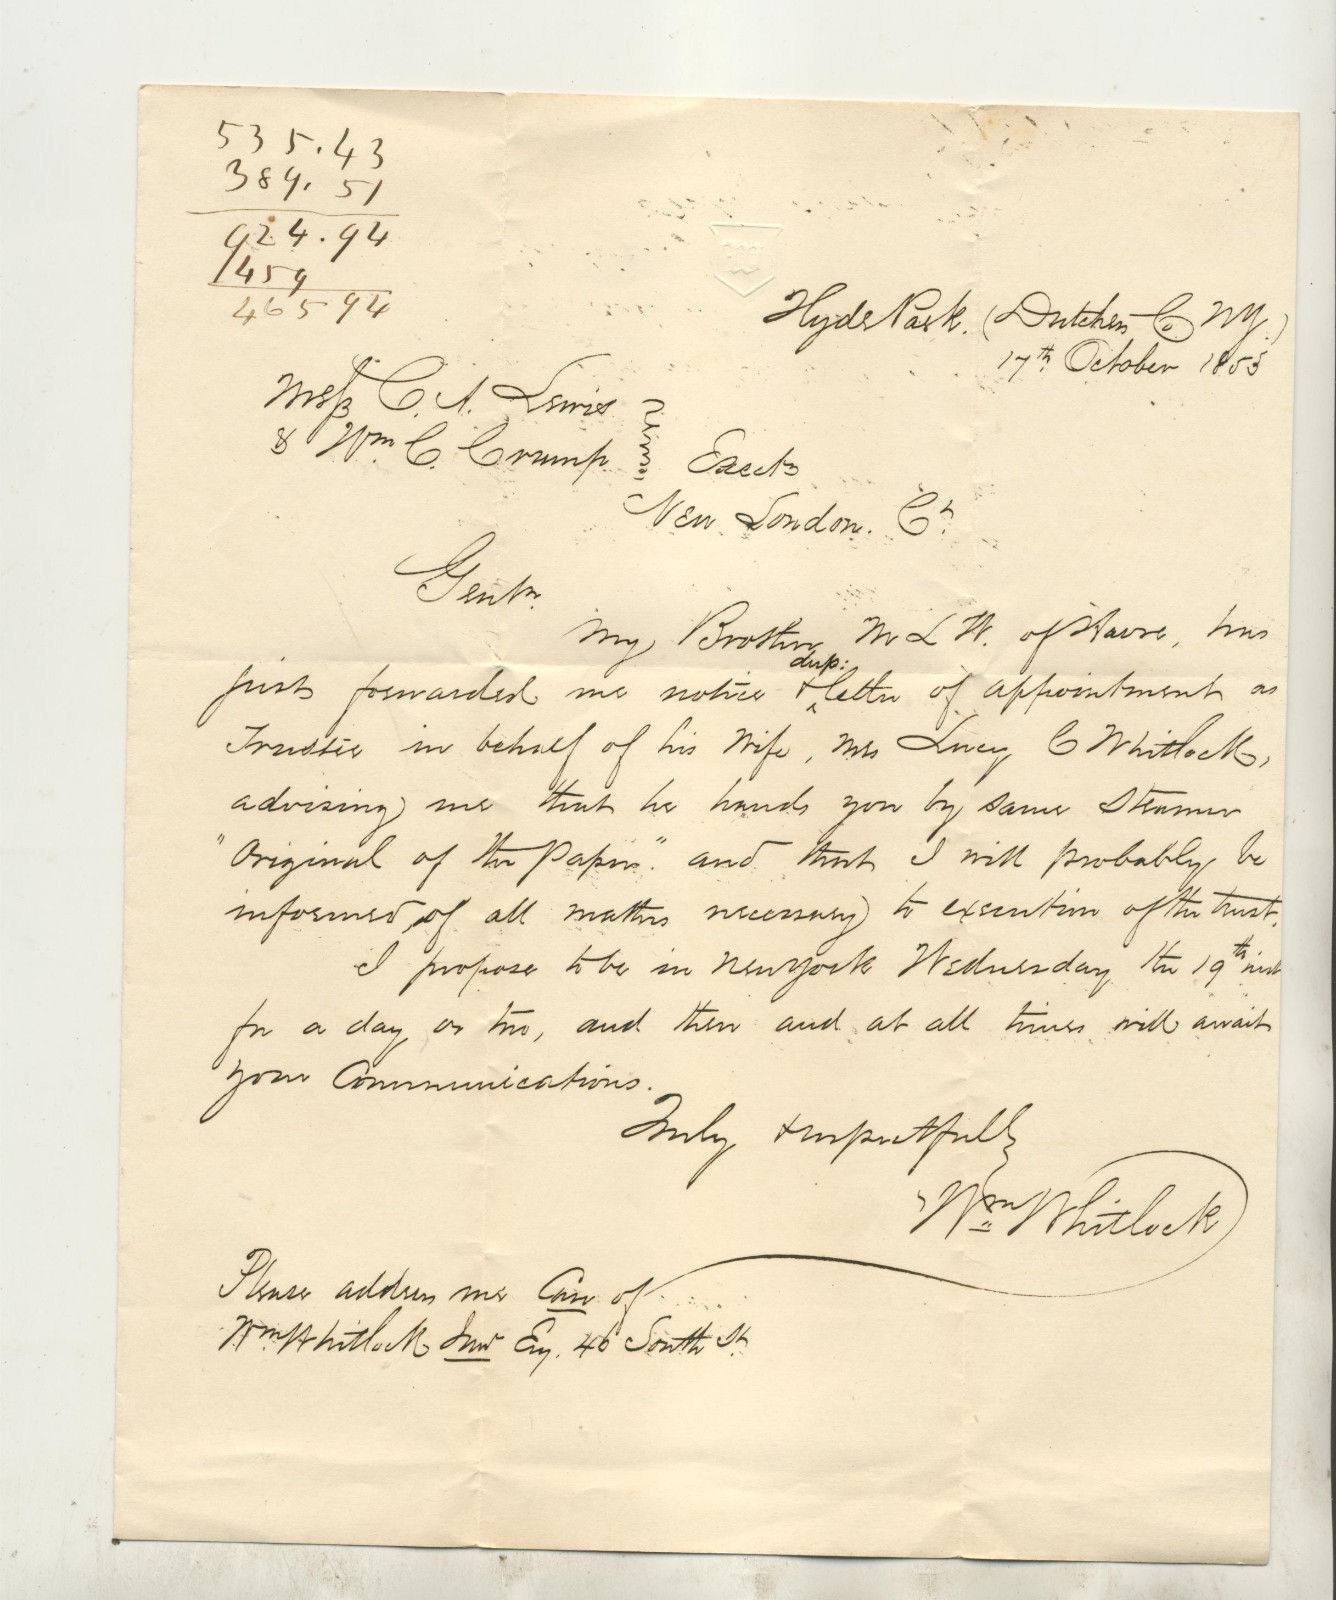 535.43
389.51
924.94
459
465 94
Hyde Park. (Dutchess Co NY.)
17th October 1853
Mess C. A. Lewis
& Wm C. Crump
Exects
New London. Ct.
Gentn.
My Brother Mr L W. of Havre, has
just forwarded me notice & dup: letter of appointment as
Trustee in behalf of his Wife, Mrs Lucy C Whitlock,
advising me that he hands you by same Steamer
"Original of the Papers". and that I will probably be
informed, of all matters necessary to execution of the trust.
I propose to be in New York Wednesday the 19th inst
for a day or two, and then and at all times will await
your Communications.
Truly & respectfully
Wm Whitlock
Please address me Care of
Wm Whitlock Junr Esq. 46 South St.